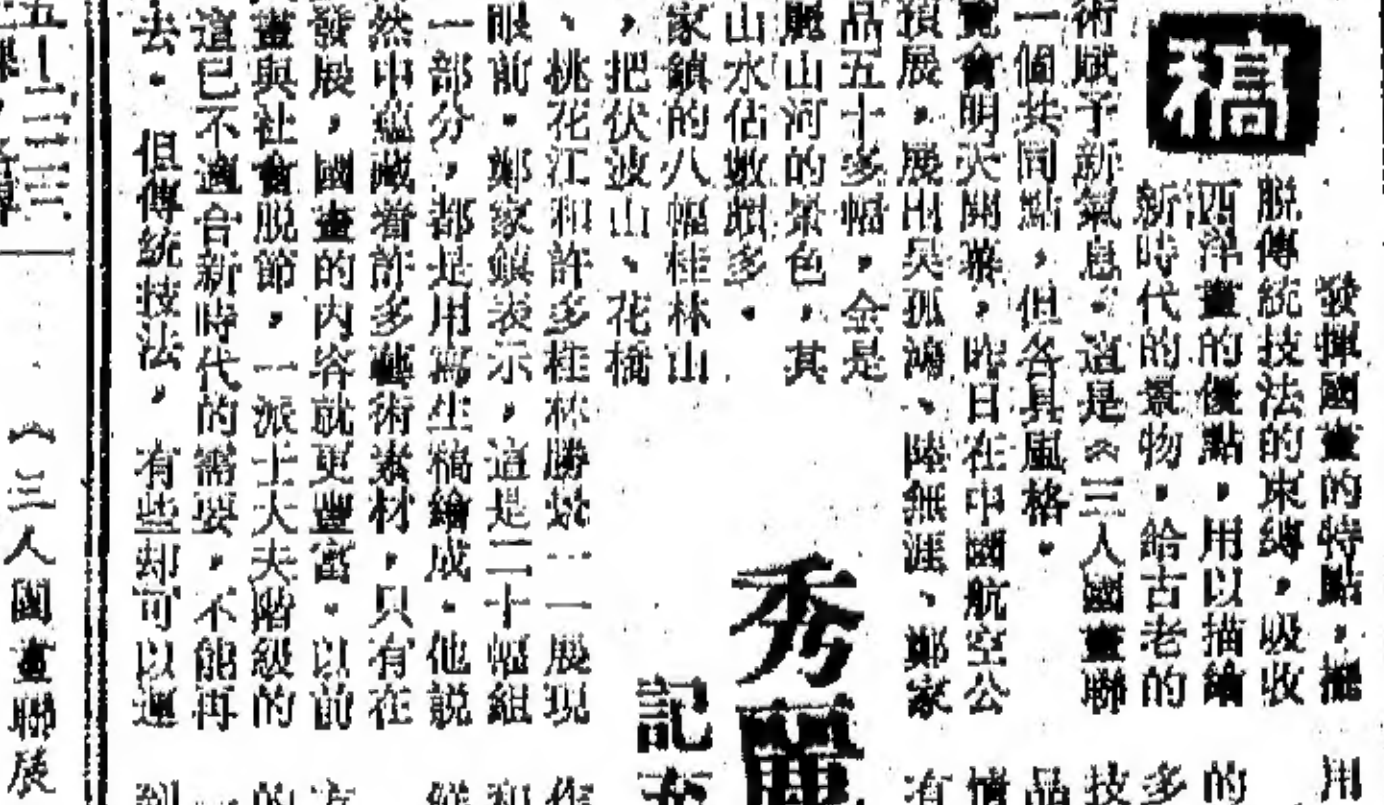 稿
發揮國畫的特點,擺
脫傳統技法的束縛,吸收
西洋畫的優點,用以描繪
新時代的景物,給古老的
術賦予新氣息。這是《三人國畫聯
一個共同點,但各具風格。
覽會明天開幕,昨日在中國航空公
預展,展出吳孤鴻、陸無涯、鄭家
品五十多幅,全是
麗山河的景色,其
山水佔數頗多。
家鎮的八幅桂林山
,把伏波山、花橋
、桃花江和許多桂林勝景一一展現
眼前。鄭家鎮表示,這是二十幅組
一部分,都是用寫生稿繪成。他說
然中蘊藏着許多藝術素材,只有在
發展,國畫的內容就更豐富。以前
畫與社會脫節,一派士大夫階級的
這已不適合新時代的需要,不能再
去。但傳統技法,有些却可以運
秀麗
記
用
的
多
技
品
情
有
作
和
的
一
到
《三人國畫聯展